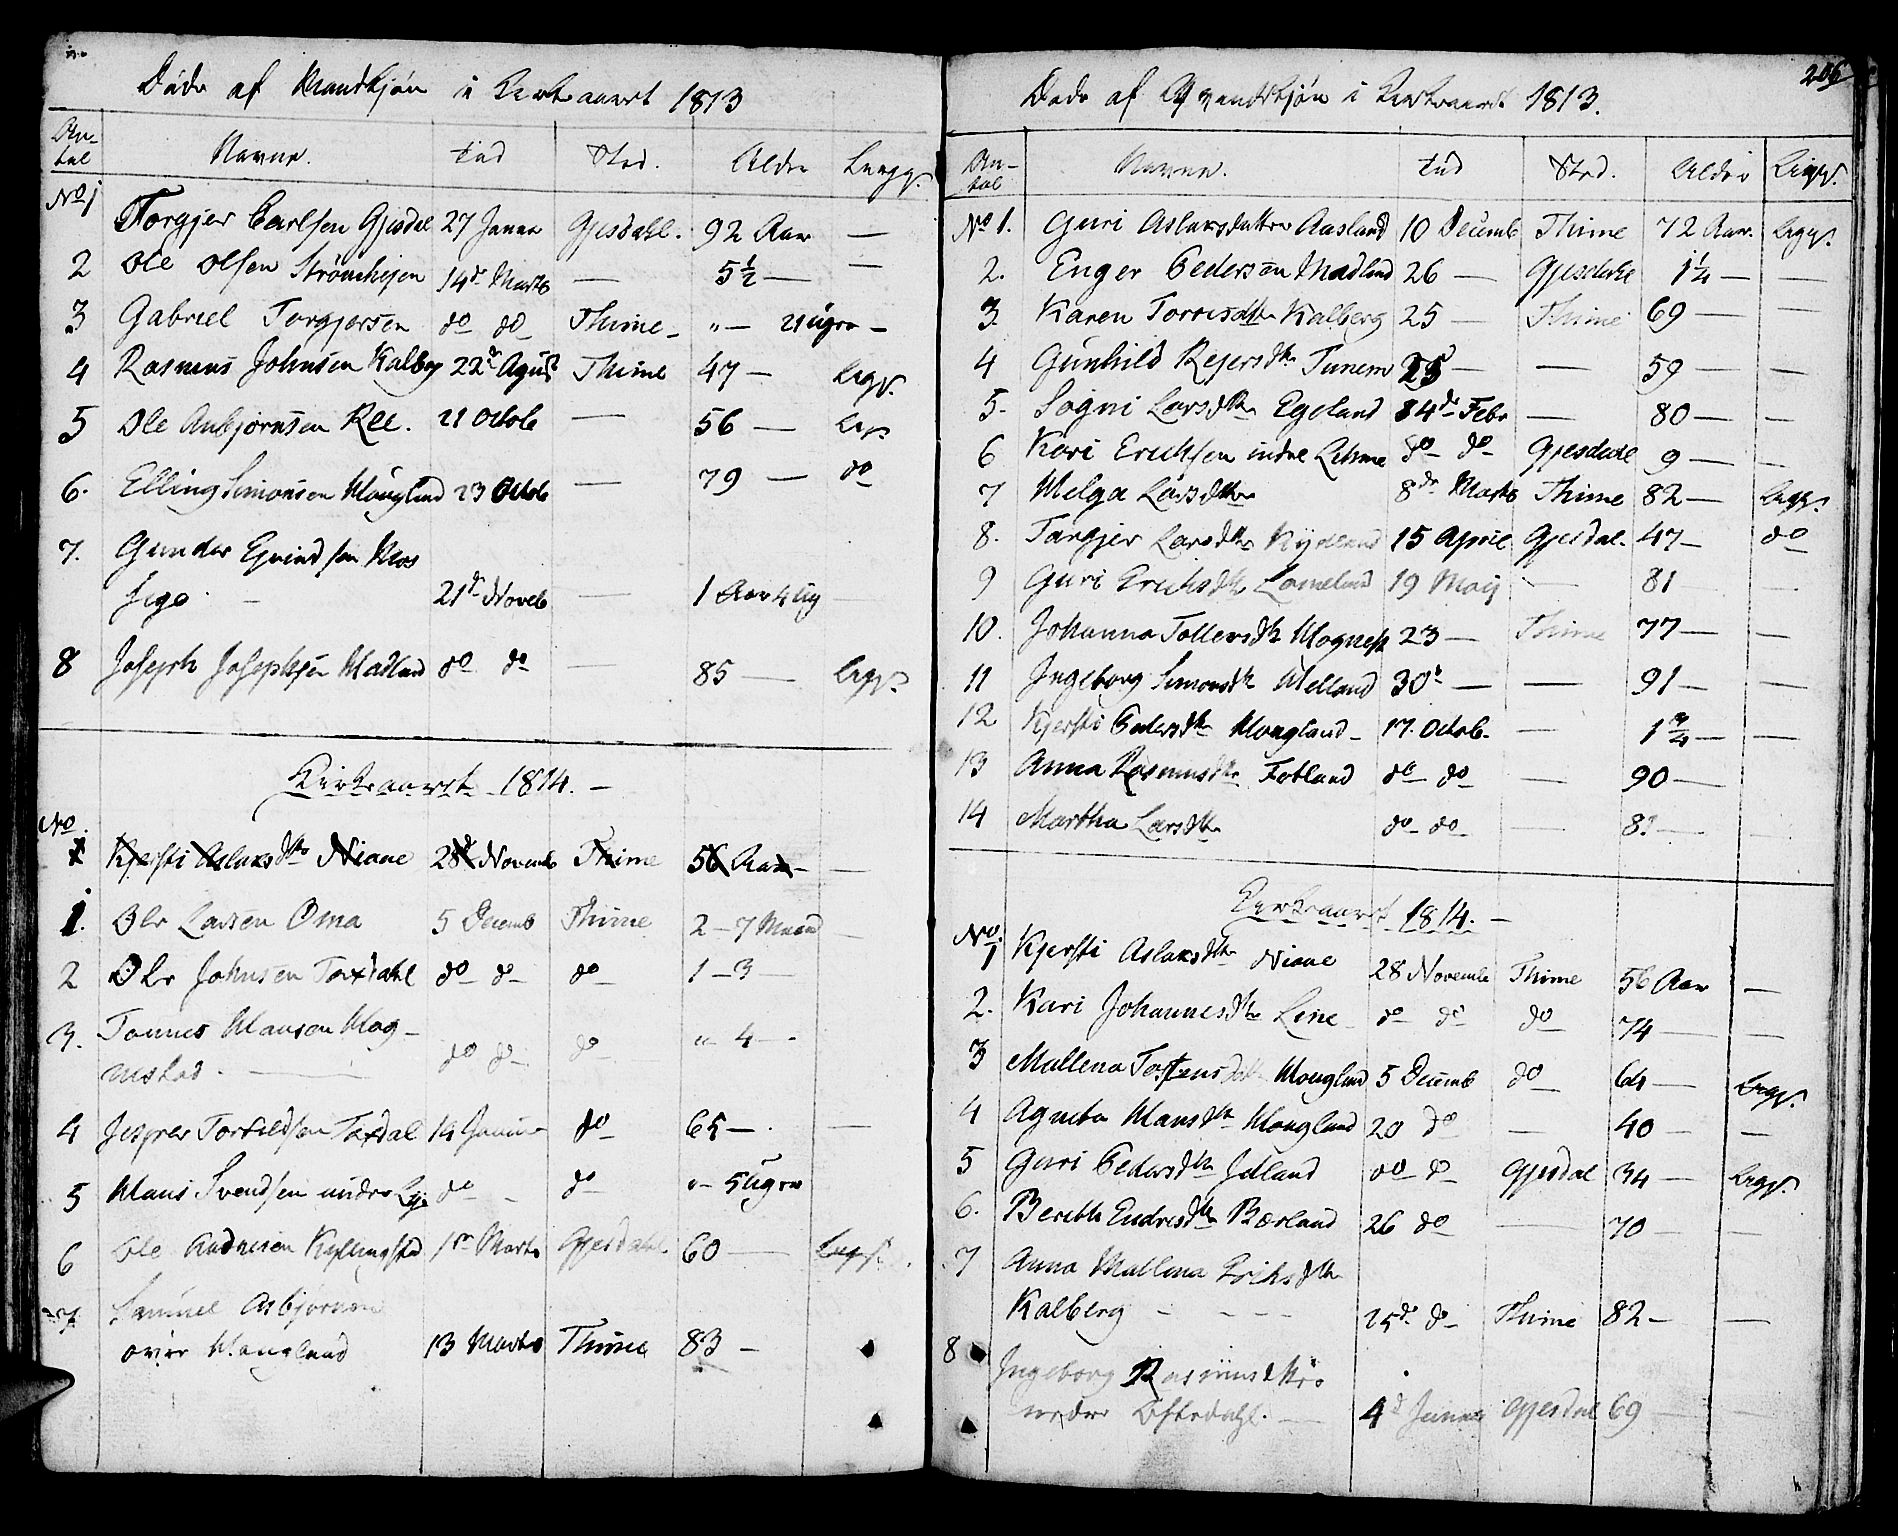 Døde af Mandkjøn i Kirkeaaret 1813
An-
tal Navne. Tid Sted. Alder Legg.
No 1 Torgjer Carlsen Gjesdal 27 Janua Gjesdahl. 92 Aar —
2 Ole Olsen 14de Marts — 5½ — —
3 Gabriel Torgjersen do do Thime — " — Uger —
4 Rasmus Johnsen Kalberg 22de Agust Thime 47 — Legg.
5 Ole Asbjørnsen Ree. 21 Octob — 56 — Leg.
6. Elling Simonsen Houglund 23 Octob — 79 — do
7. Gunder Ejvindsen Mos
sige — 21de Noveb — 1 Aar 4 Ug —
8 Joseph Josephsen Madland do do — 85 — Legg.
Kirkeaaret 1814. —
No.
1 Kjersti Aslaksdtr Niane 28de Novemb Thime 56 Aar — —
1. Ole Larsen Oma 5 Decemb Thime 2 — 7 Maaned —
2 Ole Johnsen Taxdahl do do do 1 — 3 —
3. Tønnes Hansen Hog-
nestad. — do do do " 4 — .
4 Jesper Torkildsen Taxdal 14 Januar do 65 — . —
5 Hans Svendsen undre Lye do — do " — 5 Uger
6 Ole Andresen Kyllingstad 1ste Marts Gjesdahl 60 — Legg.
7 Samuel Asbjørnsen
øvre Hougland 13 Marts Thime 83 —
206
Døde af Qvindekjøn i Kirkeaaret 1813.
An-
tal Navne. Tid Sted. Alder Legg.
No 1. Guri Aslaksdatter Aasland 10 Decemb Thime 72 Aar. Legg.
2. Enger Pedersen Madland 26 — Gjesdahl 1¼ —
3. Karen Torresdtr Kalberg 25 — Thime 69 — —
4 Gunhild Rejersdtr Tunem 25 — — 59 — —
5. Sogni Larsdtr Egeland 14de Febr — 80 — —
6 Kari Ericksen indre Lihme do do Gjesdahl 9 — —
7 Helga Larsdtr 8de Marts Thime 82 — Legg.
8. Torgjer Larsdtr Kydland 15 April Gjesdal. 47 — do
9 Guri Ericksdtr 19 Maij — 81 —
10. Johanna Tollevsdtr Hognest 23 — Thime 77 — —
11 Ingeborg Simonsdtr Helland 30te — — 91 — —
12 Kjersti Pedersdtr Hougland — 17. Octob. — 1¾ — —
13 Anna Rasmusdtr Fotland do do — 90 —
14 Martha Larsdtr do do — —
Kirkeaaret 1814. —
No.
1 Kjersti Aslaksdtr Niane 28 Novemb Thime 56 Aar —
2. Kari Johannesdtr Line do do do 74 — —
3 Mallena Tostensdatter Hougland 5 Decemb do 64 — Legg.
4 Agneta Hansdtr Hougland 20 do — 40 — —
5 Guri Pedersdtr do do Gjesdal 34 — Legg.
6. Berith Endresdtr Bærland 26 do — 70 — —
7 Anna Mallena Eriksdtr
Kalberg — — — — 25de do Thime 82 — —
8 Ingeborg Rasmusdttr
nedre Oftedahl. — 4de Januar Gjesdal 69 —